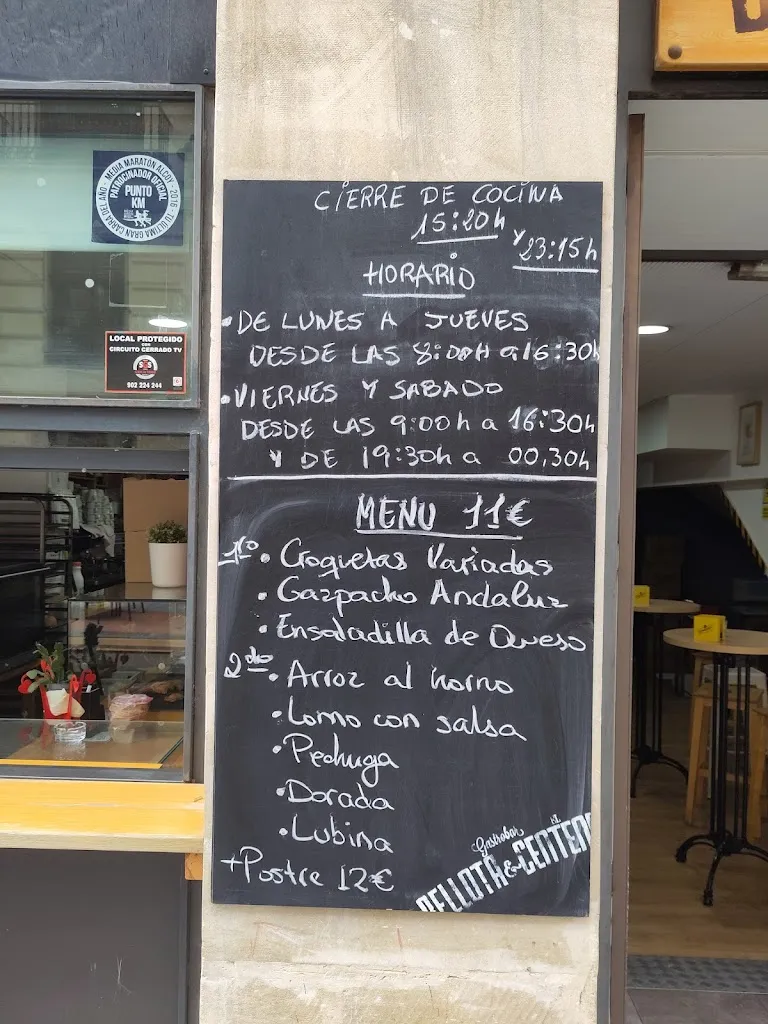 MEDIA MARATÓN ALCOY - 2016 - TU ÚLTIMA GRAN CARRERA DEL AÑO -
PATROCINADOR OFICIAL
PUNTO
KM
LOCAL PROTEGIDO
CON
CIRCUITO CERRADO TV
902 224 244
CIERRE DE COCINA
15:20h
Y 23:15h
HORARIO
• DE LUNES A JUEVES
DESDE LAS 8:00H a 16:30h
• VIERNES Y SABADO
DESDE LAS 9:00h a 16:30h
Y DE 19:30h a 00,30h
MENU 11€
1º • Croquetas Variadas
• Gazpacho Andaluz
• Ensaladilla de Queso
2do • Arroz al horno
• Lomo con salsa
• Pechuga
• Dorada
• Lubina
+Postre 12€
Gastrobar
BELLOTA & CENTENO